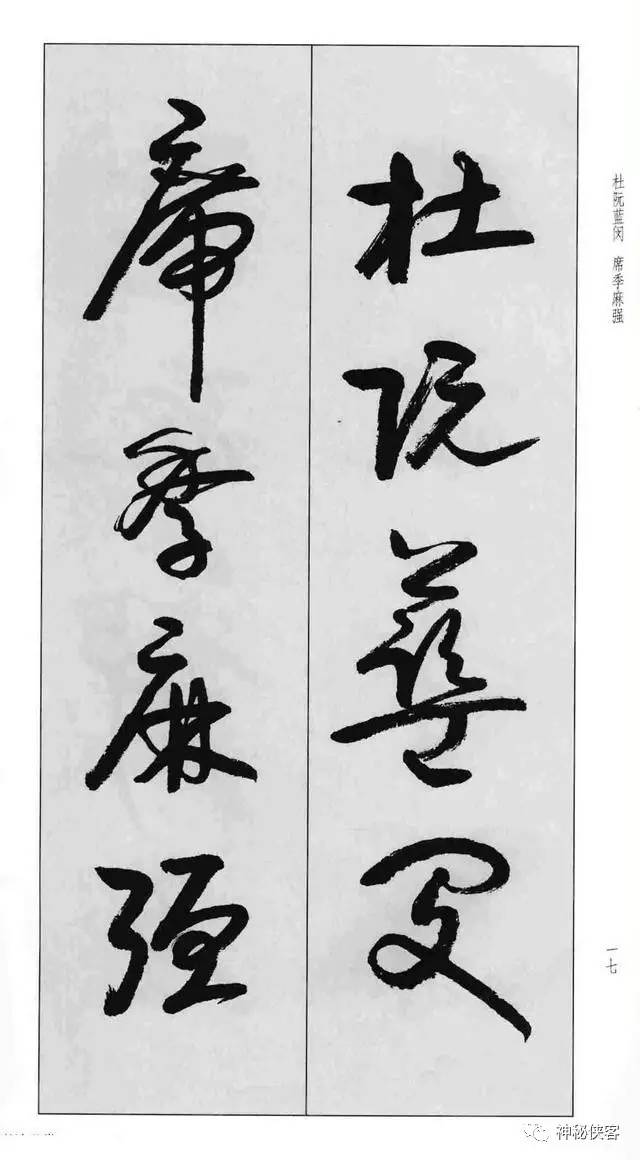 杜阮蓝闵 席季麻强
杜阮蓝闵
席季麻强
一七
神秘侠客